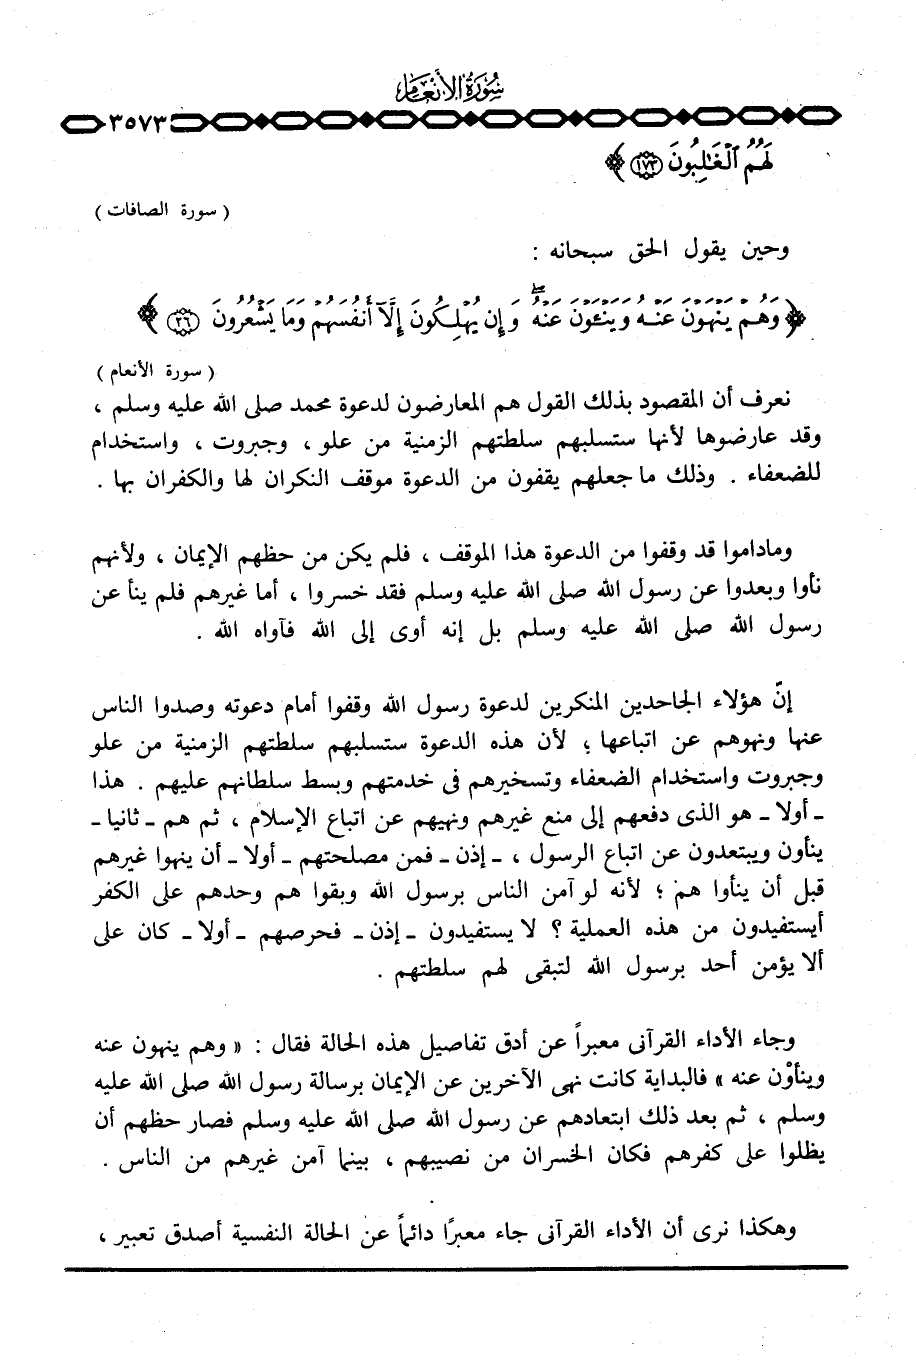 سُورَةُ الأَنْعَام
٣٥٧٣
لَهُمُ ٱلْغَٰلِبُونَ ۝١٧٣ ﴾
( سورة الصافات )
وحين يقول الحق سبحانه :
﴿ وَهُمْ يَنْهَوْنَ عَنْهُ وَيَنْـَٔوْنَ عَنْهُ ۖ وَإِن يُهْلِكُونَ إِلَّآ أَنفُسَهُمْ وَمَا يَشْعُرُونَ ۝٢٦ ﴾
( سورة الأنعام )
نعرف أن المقصود بذلك القول هم المعارضون لدعوة محمد صلى الله عليه وسلم ،
وقد عارضوها لأنها ستسلبهم سلطتهم الزمنية من علو ، وجبروت ، واستخدام
للضعفاء . وذلك ما جعلهم يقفون من الدعوة موقف النكران لها والكفران بها .
وماداموا قد وقفوا من الدعوة هذا الموقف ، فلم يكن من حظهم الإيمان ، ولأنهم
نأوا وبعدوا عن رسول الله صلى الله عليه وسلم فقد خسروا ، أما غيرهم فلم ينأ عن
رسول الله صلى الله عليه وسلم بل إنه أوى إلى الله فآواه الله .
إنّ هؤلاء الجاحدين المنكرين لدعوة رسول الله وقفوا أمام دعوته وصدوا الناس
عنها ونهوهم عن اتباعها ؛ لأن هذه الدعوة ستسلبهم سلطتهم الزمنية من علو
وجبروت واستخدام الضعفاء وتسخيرهم فى خدمتهم وبسط سلطانهم عليهم . هذا
ـ أولا ـ هو الذى دفعهم إلى منع غيرهم ونهيهم عن اتباع الإسلام ، ثم هم ـ ثانيا ـ
ينأون ويبتعدون عن اتباع الرسول ، ـ إذن ـ فمن مصلحتهم ـ أولا ـ أن ينهوا غيرهم
قبل أن ينأوا هم ؛ لأنه لو آمن الناس برسول الله وبقوا هم وحدهم على الكفر
أيستفيدون من هذه العملية ؟ لا يستفيدون ـ إذن ـ فحرصهم ـ أولا ـ كان على
ألا يؤمن أحد برسول الله لتبقى لهم سلطتهم .
وجاء الأداء القرآنى معبراً عن أدق تفاصيل هذه الحالة فقال : « وهم ينهون عنه
وينأوْن عنه » فالبداية كانت نهى الآخرين عن الإيمان برسالة رسول الله صلى الله عليه
وسلم ، ثم بعد ذلك ابتعادهم عن رسول الله صلى الله عليه وسلم فصار حظهم أن
يظلوا على كفرهم فكان الخسران من نصيبهم ، بينما آمن غيرهم من الناس .
وهكذا نرى أن الأداء القرآنى جاء معبرًا دائماً عن الحالة النفسية أصدق تعبير ،